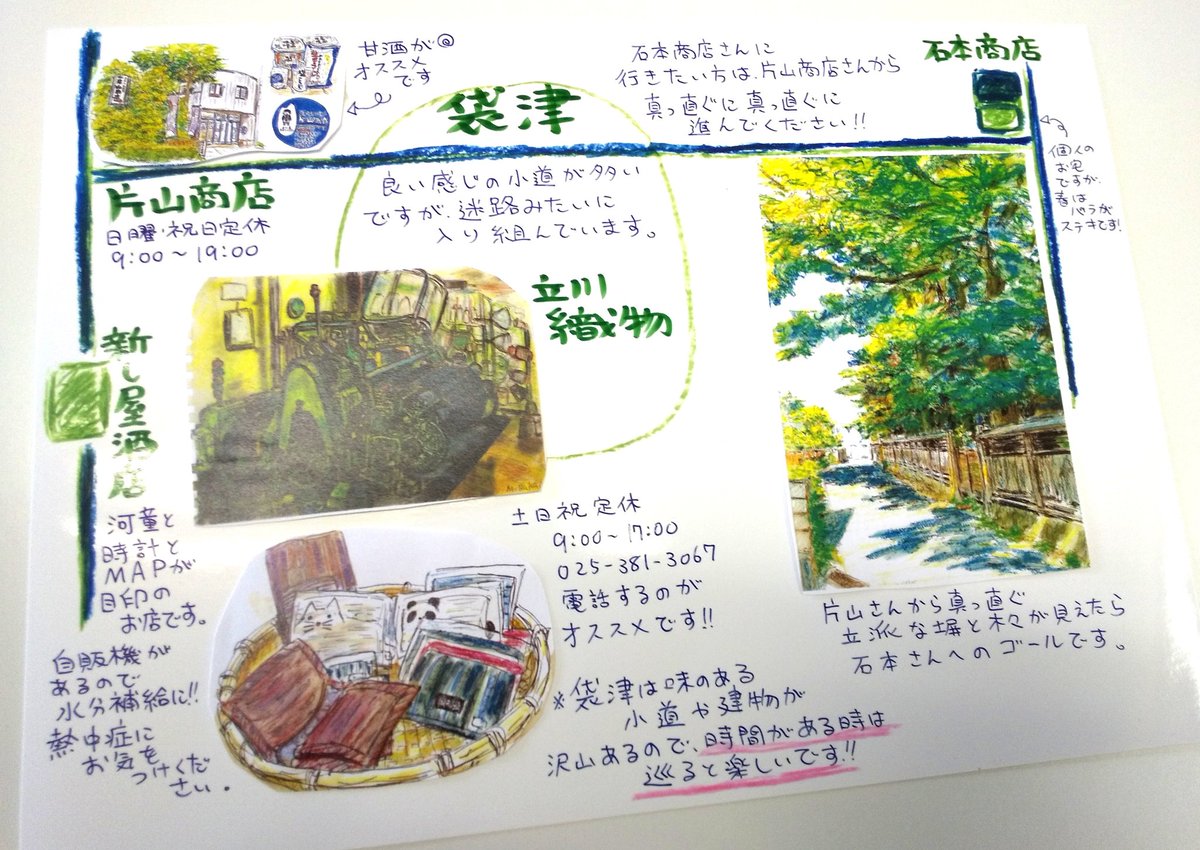 甘酒が
オススメ
です
袋津
石本商店さんに
行きたい方は、片山商店さんから
真っ直ぐに真っ直ぐに
進んでください!!
石本商店
個人の
お宅
ですが、
春は
バラが
ステキです!
片山商店
日曜・祝日定休
9:00〜19:00
良い感じの小道が多い
ですが、迷路みたいに
入り組んでいます。
立川
織物
新し屋酒店
河童と
時計と
MAPが
目印の
お店です。
自販機が
あるので
水分補給に!!
熱中症に
お気を
つけくだ
さい。
土日祝定休
9:00〜17:00
025-381-3067
電話するのが
オススメです!!
※袋津は味のある
小道や建物が
沢山あるので、時間がある時は
巡ると楽しいです!!
片山さんから真っ直ぐ
立派な塀と木々が見えたら
石本さんへのゴールです。